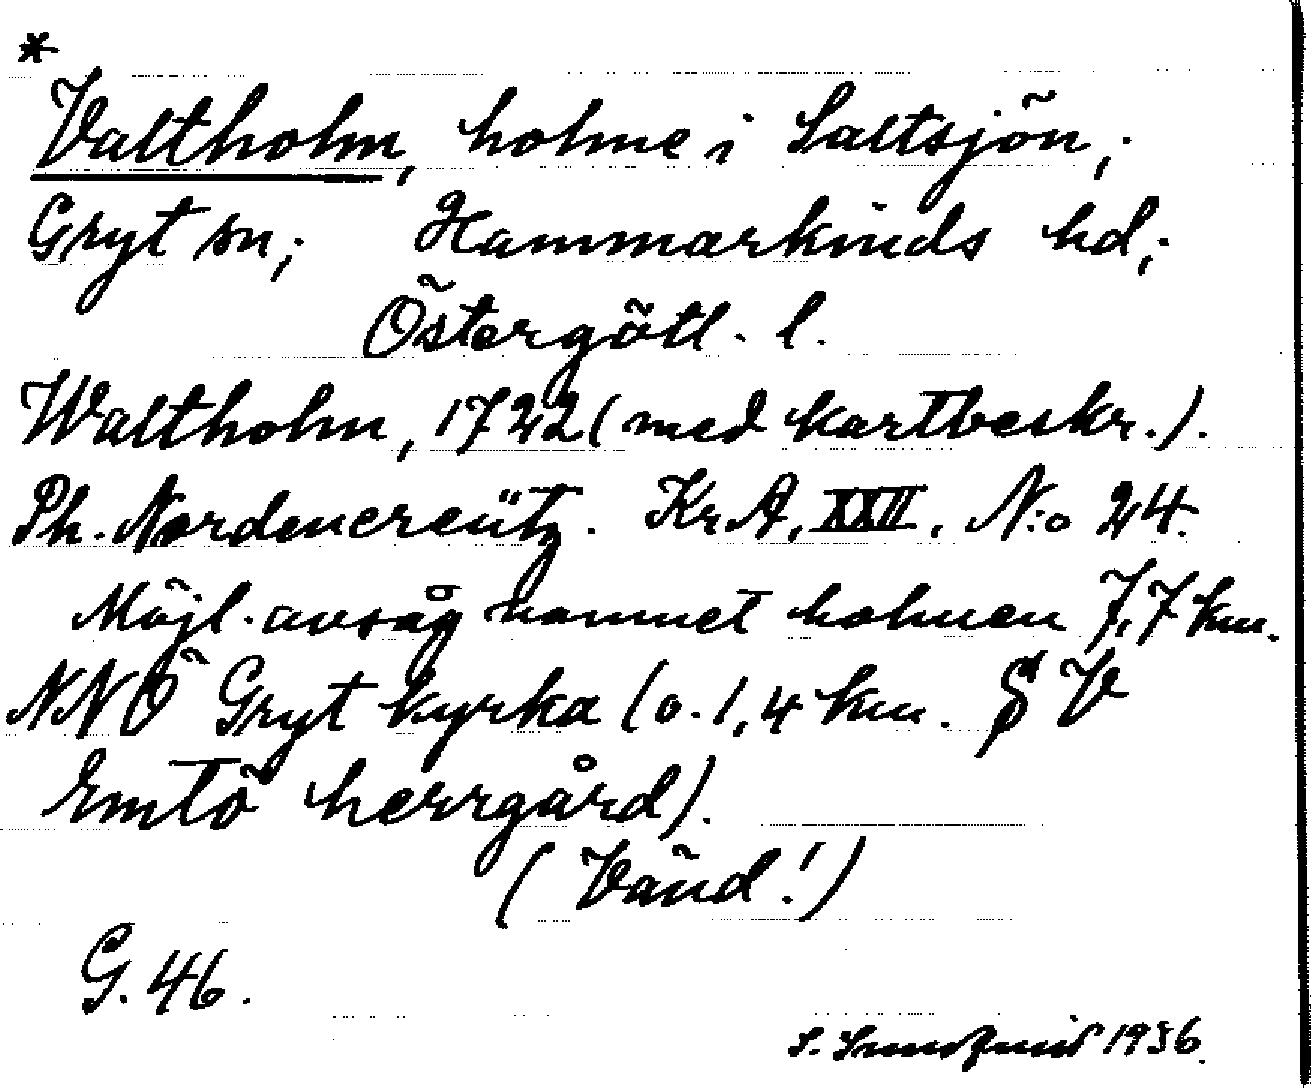 *
Valtholm, holme i Saltsjön,;
Gryt sn; Hammarkinds hd;
Östergötl. l.
Waltholm, 1722 (med kartbeskr.).
Ph. Nordencreütz. Kr.A. XXII. N:o 24.
Möjl. avsåg namnet holmen 7,7 km.
NNÖ Gryt kyrka (o. 1,4 km. S V
Emtö herrgård).
(Vänd!)
G. 46.
S. 1936.